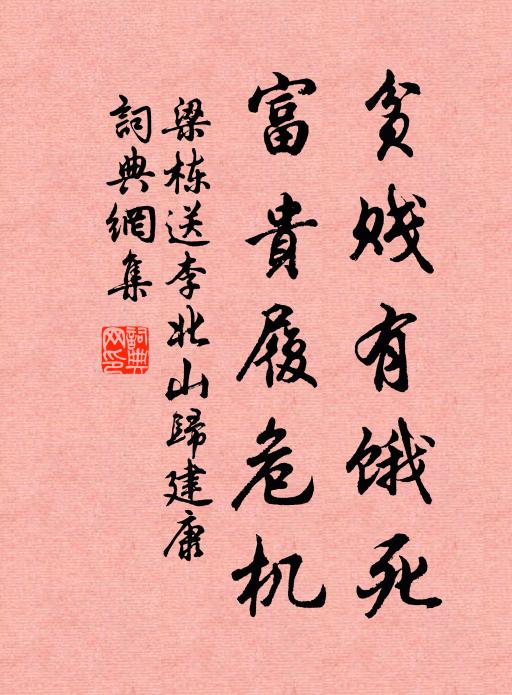 贫贱有饿死
富貴履危机
梁栋送李北山歸建康
詞典網集
詞典網印